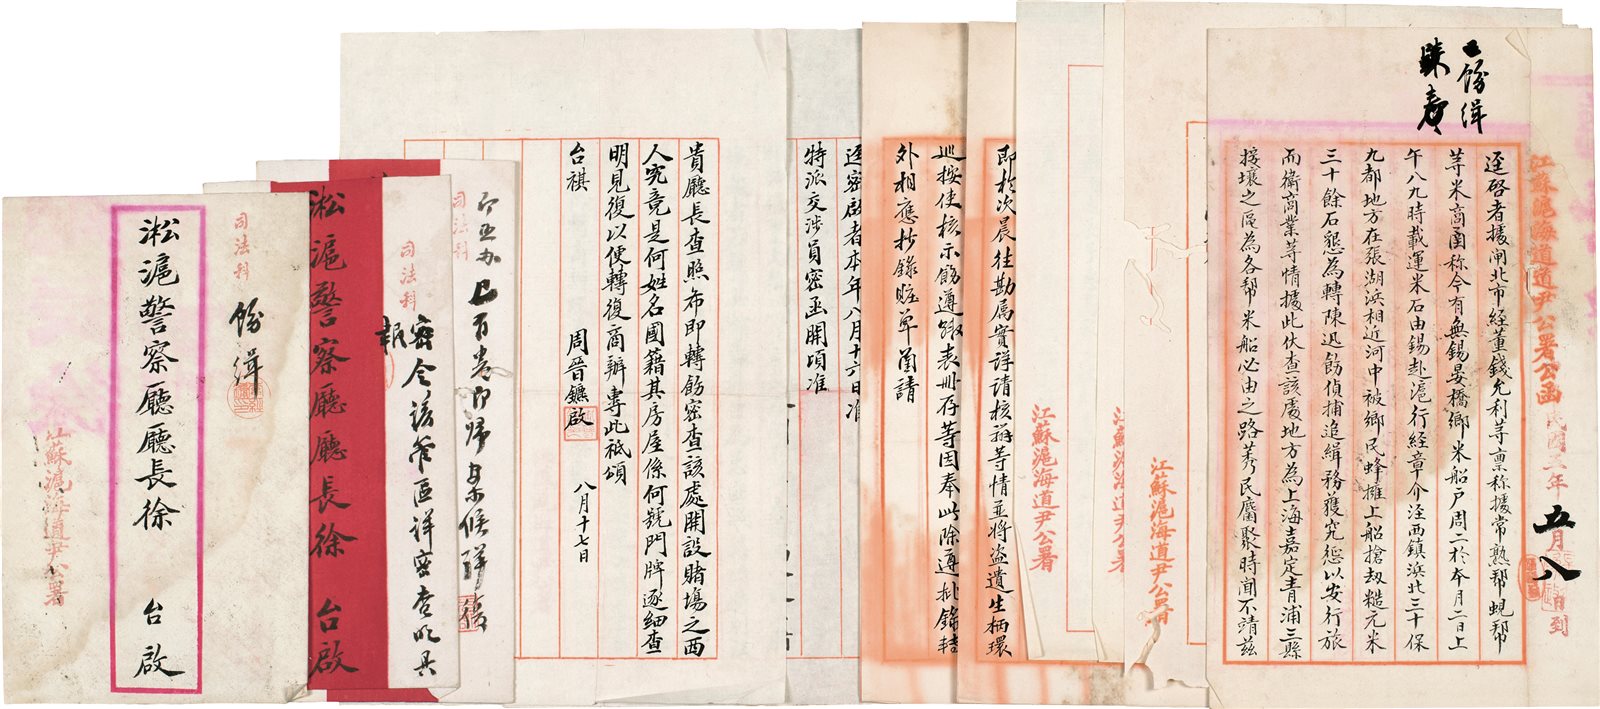 江蘇滬海道道尹公署公函
民國三年五月八日到
飭緝
逕啓者據閘北市經董錢允利等稟稱據常熟幫蜆幫
等米商函称今有無錫晏橋鄉米船户周二於本月二日上
午八九時載運米石由錫赴滬行經章介涇西鎮浜北三十保
九都地方在張湖浜相近河中被鄉民蜂擁上船搶刼糙元米
三十餘石懇為轉陳迅飭偵捕追緝務獲究懲以安行旅
而衛商業等情據此伏查該處地方為上海嘉定青浦三縣
接壤之區為各幫米船必由之路莠民麕聚時聞不靖兹
江蘇滬海道尹公署
江蘇滬海道尹公署
江蘇滬海道尹公署
即於次晨往勘属實詳請核辦等情並將盗遺生柄環
巡按使核示飭遵繳表冊存等因奉此除遵批錄轉
外相應抄錄賍单函請
逕密啟者本年八月十六日准
特派交涉員密函開頃准
貴廳長查照布即轉飭密查該處開設賭場之西
人究竟是何姓名國籍其房屋係何號門牌逐細查
明見復以便轉復商辦專此祗頌
台祺
周晉鑣啟
八月十七日
司法科
司法科
密令該管區詳密查明具
報
淞滬警察廳廳長徐 台啟
司法科
飭緝
淞滬警察廳廳長徐 台啟
江蘇滬海道尹公署